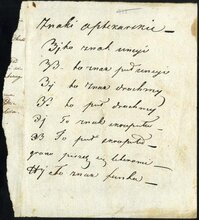 Znaki aptekarskie
℥j to znak uncyi
℥ß to znak pół uncyi
ʒj to znak drachmy
ʒß to pół drachmy
℈j To znak skrupułu
℈ß To pół skrupułu
grana piszą się literami
℔j to znak funta